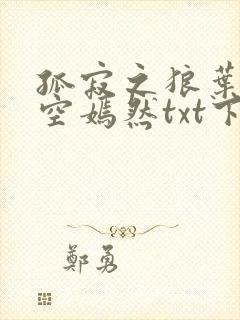 孤寂之狼葉
空嫣然txt下
鄭勇